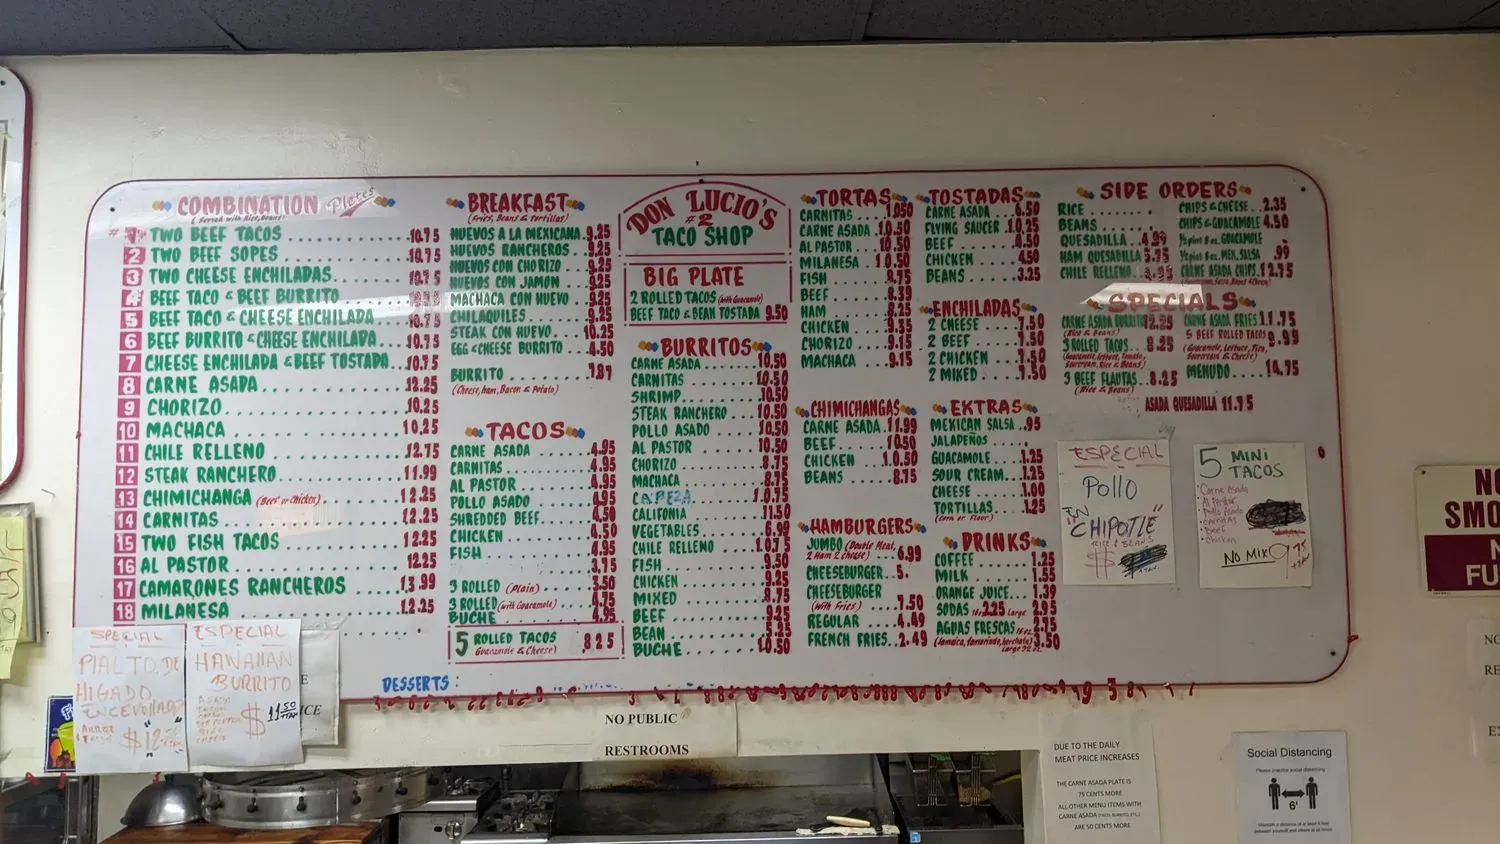 COMBINATION Plates
(Served with Rice, Beans)
#1 TWO BEEF TACOS 10.75
2 TWO BEEF SOPES 10.75
3 TWO CHEESE ENCHILADAS 10.75
4 BEEF TACO & BEEF BURRITO
5 BEEF TACO & CHEESE ENCHILADA 10.75
6 BEEF BURRITO & CHEESE ENCHILADA 10.75
7 CHEESE ENCHILADA & BEEF TOSTADA 10.75
8 CARNE ASADA 12.25
9 CHORIZO 10.25
10 MACHACA 10.25
11 CHILE RELLENO 12.75
12 STEAK RANCHERO 11.99
13 CHIMICHANGA (Beef or Chicken) 12.25
14 CARNITAS 12.25
15 TWO FISH TACOS 12.25
16 AL PASTOR 12.25
17 CAMARONES RANCHEROS 13.99
18 MILANESA 12.25
SPECIAL
HIGADO
ENCEVOLLADO
ESPECIAL
HAWAIIAN
BURRITO
$11.50
+TAX
BREAKFAST
(Fries, Beans & Tortillas)
HUEVOS A LA MEXICANA 9.25
HUEVOS RANCHEROS 9.25
HUEVOS CON CHORIZO 9.25
HUEVOS CON JAMON 9.25
MACHACA CON HUEVO 9.25
CHILAQUILES 9.25
STEAK CON HUEVO 10.25
EGG & CHEESE BURRITO 4.50
BURRITO 7.87
(Cheese, ham, Bacon & Potato)
TACOS
CARNE ASADA 4.95
CARNITAS 4.95
AL PASTOR 4.95
POLLO ASADO 4.95
SHREDDED BEEF 4.50
CHICKEN 4.50
FISH 4.95
3.75
3 ROLLED (Plain) 3.50
3 ROLLED (with Guacamole) 4.75
BUCHE 4.95
5 ROLLED TACOS 8.25
Guacamole & Cheese)
DESSERTS:
DON LUCIO'S
#2
TACO SHOP
BIG PLATE
2 ROLLED TACOS (with Guacamole)
BEEF TACO & BEAN TOSTADA 9.50
BURRITOS
CARNE ASADA 10.50
CARNITAS 10.50
SHRIMP 10.50
STEAK RANCHERO 10.50
POLLO ASADO 10.50
AL PASTOR 10.50
CHORIZO 8.75
MACHACA 8.75
CABEZA 10.75
CALIFONIA 11.50
VEGETABLES 6.99
CHILE RELLENO 10.75
FISH 9.50
CHICKEN 9.25
MIXED 8.75
BEEF 9.25
BEAN
BUCHE 10.50
TORTAS
CARNITAS 10.50
CARNE ASADA 10.50
AL PASTOR 10.50
MILANESA 10.50
FISH 8.75
BEEF 8.39
HAM 8.25
CHICKEN 9.35
CHORIZO 9.15
MACHACA 9.15
CHIMICHANGAS
CARNE ASADA 11.99
BEEF 10.50
CHICKEN 10.50
BEANS 8.75
HAMBURGERS
JUMBO (Double Meat, 2 Ham 2 Cheese) 6.99
CHEESEBURGER 5.
CHEESEBURGER
(With Fries) 7.50
REGULAR 4.49
FRENCH FRIES 2.49
TOSTADAS
CARNE ASADA 6.50
FLYING SAUCER 10.25
BEEF 4.50
CHICKEN 4.50
BEANS 3.25
ENCHILADAS
2 CHEESE 7.50
2 BEEF 7.50
2 CHICKEN 7.50
2 MIXED 7.50
EXTRAS
MEXICAN SALSA .95
JALAPEÑOS
GUACAMOLE 1.25
SOUR CREAM 1.25
CHEESE 1.00
TORTILLAS 1.25
(Corn or Flour)
DRINKS
COFFEE 1.25
MILK 1.55
ORANGE JUICE 1.39
SODAS 16oz 2.25 Large 2.95
AGUAS FRESCAS 16oz 2.75
(Jamaica, tamarindo, horchata) Large 32oz. 3.50
SIDE ORDERS
RICE
BEANS
QUESADILLA 4.99
HAM QUESADILLA 5.75
CHILE RELLENO
CHIPS & CHEESE 2.35
CHIPS & GUACAMOLE 4.50
½ pint 8 oz. GUACAMOLE
½ pint 8 oz. MEX. SALSA .99
CARNE ASADA CHIPS 12.75
SPECIALS
CARNE ASADA BURRITO 12.25
(Rice & Beans)
3 ROLLED TACOS 8.25
(Guacamole, Lettuce, Tomato,
Sourcream, Rice & Beans)
3 BEEF FLAUTAS 8.25
(Rice & Beans)
CARNE ASADA FRIES 11.75
5 BEEF ROLLED TACOS 9.99
(Guacamole, Lettuce, Pico,
Sourcream & Cheese)
MENUDO 14.75
ASADA QUESADILLA 11.75
ESPECIAL
POLLO
"IN
CHIPOTLE"
RICE & BEANS
$ +TAX
5 MINI
TACOS
Carne Asada
Al Pastor
Pollo Asado
Carnitas
Beef
Chicken
NO MIX
NO PUBLIC
RESTROOMS
DUE TO THE DAILY
MEAT PRICE INCREASES
THE CARNE ASADA PLATE IS
75 CENTS MORE
ALL OTHER MENU ITEMS WITH
CARNE ASADA (TACOS, BURRITO, ETC.)
ARE 50 CENTS MORE
Social Distancing
Please practice social distancing
6'
Maintain a distance of at least 6 feet
between yourself and others at all times
NO
SMO
N
FU